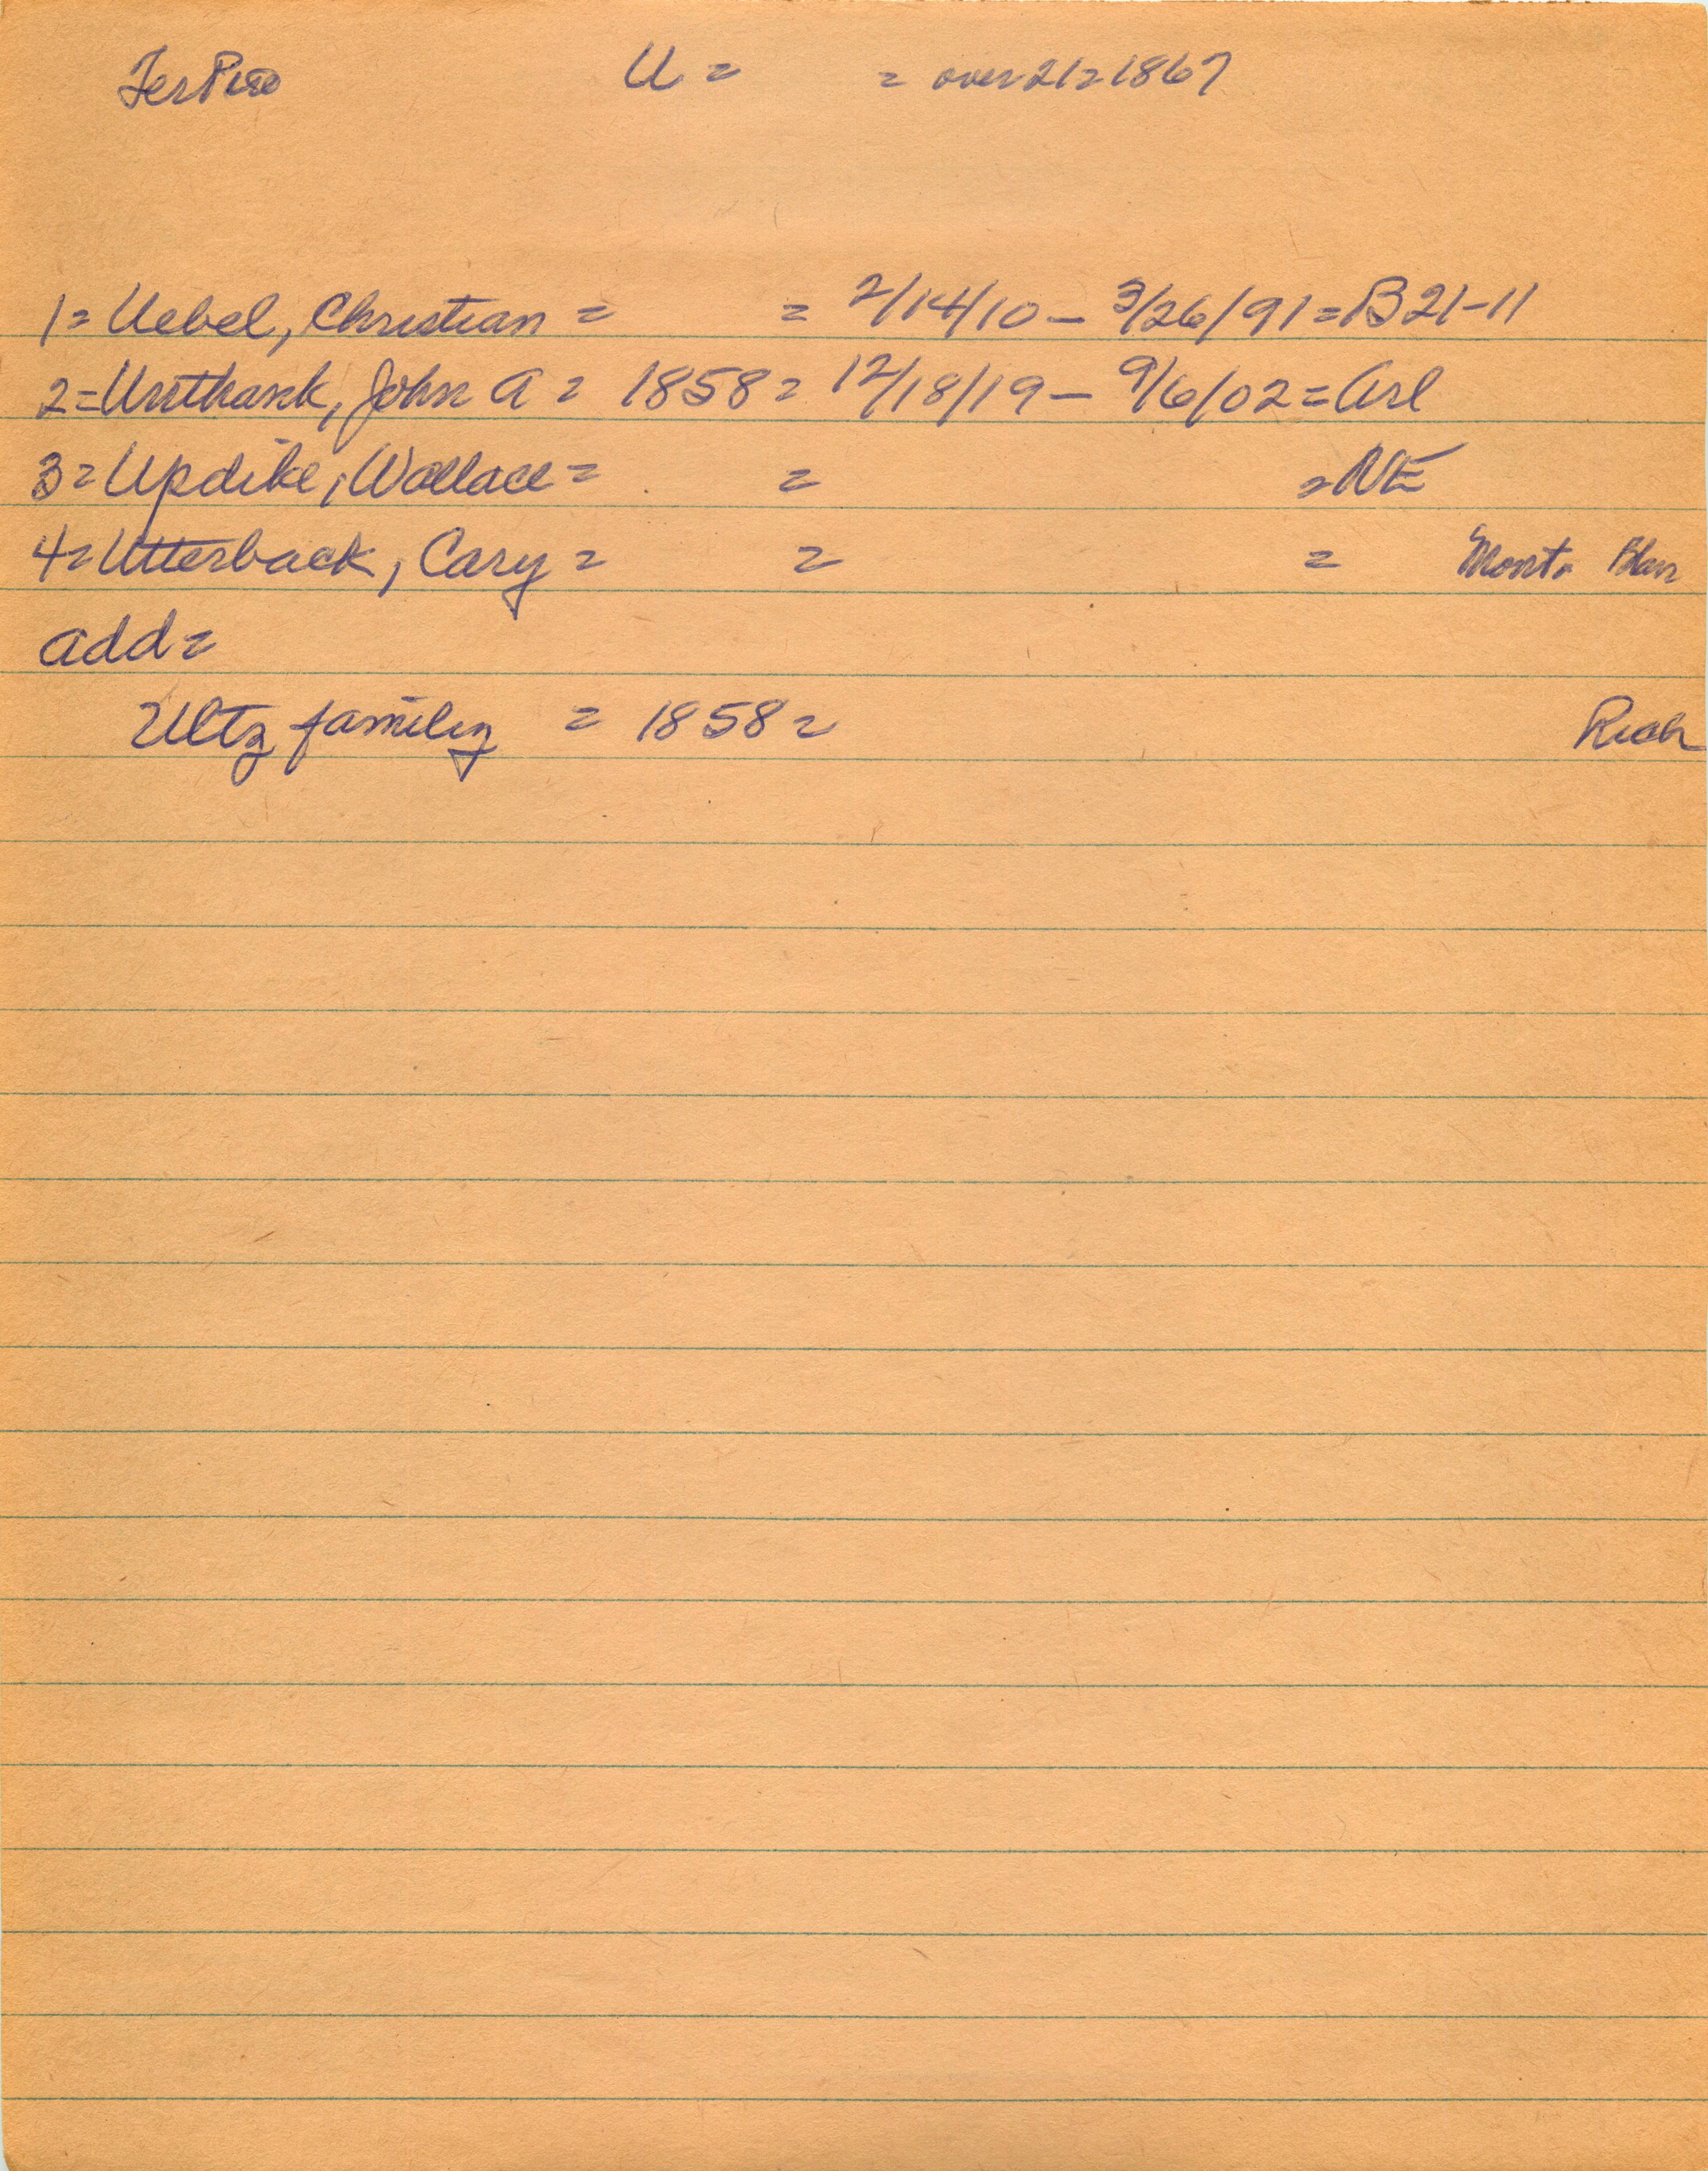 TerPio U = = over 21 = 1867
1 = Uebel, Christian = = 2/14/10 - 3/26/91 = B21-11
2 = Unthank, John A = 1858 = 12/18/19 - 9/6/02 = Arl
3 = Updike, Wallace = = = NE
4 = Utterback, Cary = = = Mont. Blan
add =
Ultz family = 1858 = Rich